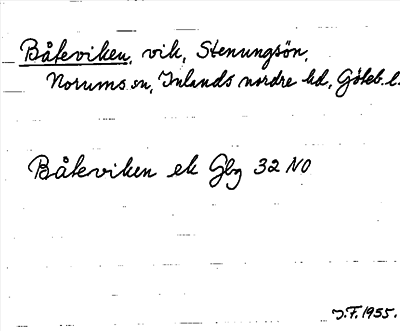 Båteviken, vik, Stenungsön,
Norums sn, Inlands nordre hd, Göteb. l.
Båteviken ek Gbg 32 NO
J.F. 1955.